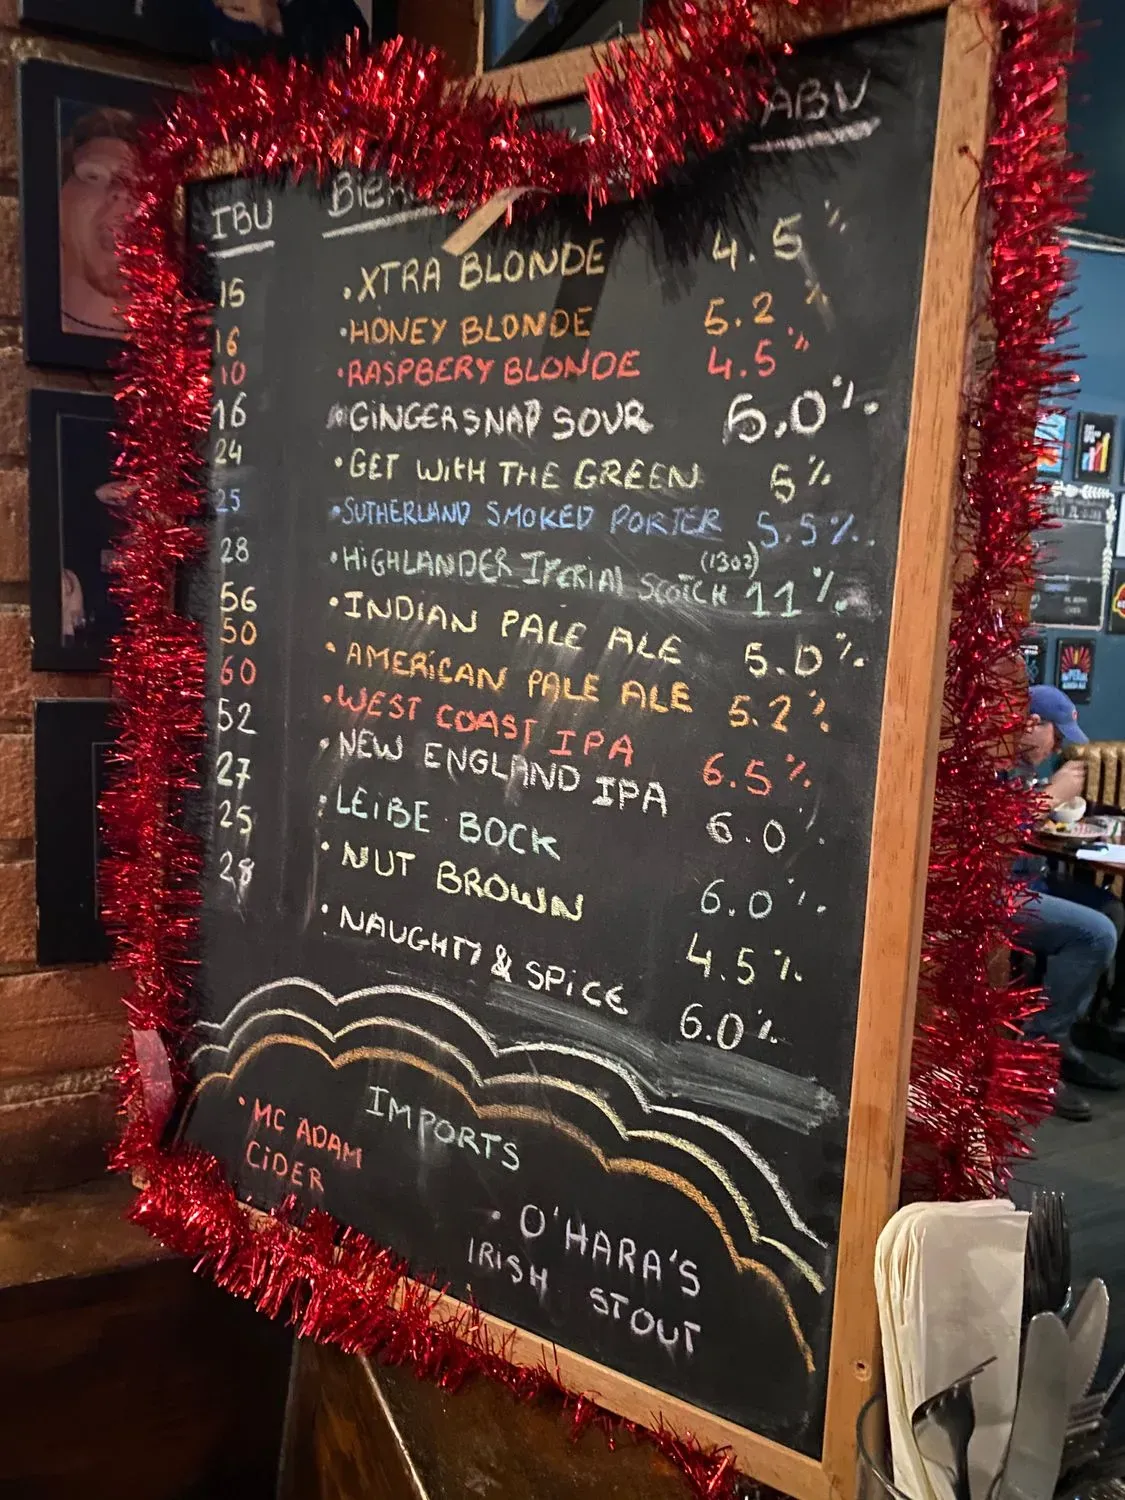 IBU ABV
15 · XTRA BLONDE 4.5%
16 · HONEY BLONDE 5.2%
10 · RASPBERY BLONDE 4.5%
16 · GINGERSNAP SOUR 5.0%
24 · GET WITH THE GREEN 5%
25 · SUTHERLAND SMOKED PORTER 5.5%
28 · HIGHLANDER IMPERIAL SCOTCH (13oz) 11%
56 · INDIAN PALE ALE 5.0%
50 · AMERICAN PALE ALE 5.2%
60 · WEST COAST IPA 6.5%
52 · NEW ENGLAND IPA 6.0%
27 · LEIBE BOCK 6.0%
25 · NUT BROWN 4.5%
28 · NAUGHTY & SPICE 6.0%
IMPORTS
· MC ADAM
CIDER
· O'HARA'S
IRISH STOUT